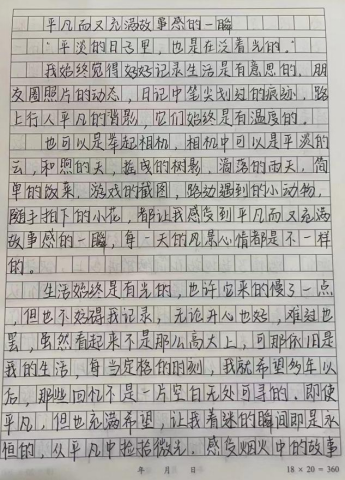 平凡而又充满故事感的一瞬
"平淡的日子里，也是在泛着光的。"
我始终觉得好好记录生活是有意思的，朋
友圈照片的动态，日记中笔尖划过的痕迹，路
上行人平凡的背影，它们始终是有温度的。
也可以是举起相机，相机中可以是平淡的
云，和煦的天，摇曳的树影，滴落的雨天，简
单的饭菜，游戏的截图，路边遇到的小动物，
随手拍下的小花，都让我感受到平凡而又充满
故事感的一瞬，每一天的风景心情都是不一样
的。
生活始终是有光的，也许它来的慢了一点
，但也不妨碍我记录，无论开心也好，难过也
罢，虽然看起来不是那么高大上，可那依旧是
我的生活，每当定格的时刻，我就希望多年以
后，那些回忆不是一片空白无处可寻的，即使
平凡，但也充满希望，让我着迷的瞬间即是永
恒的，从平凡中捡拾微光，感受烟火中的故事
年 月 日 18×20=360